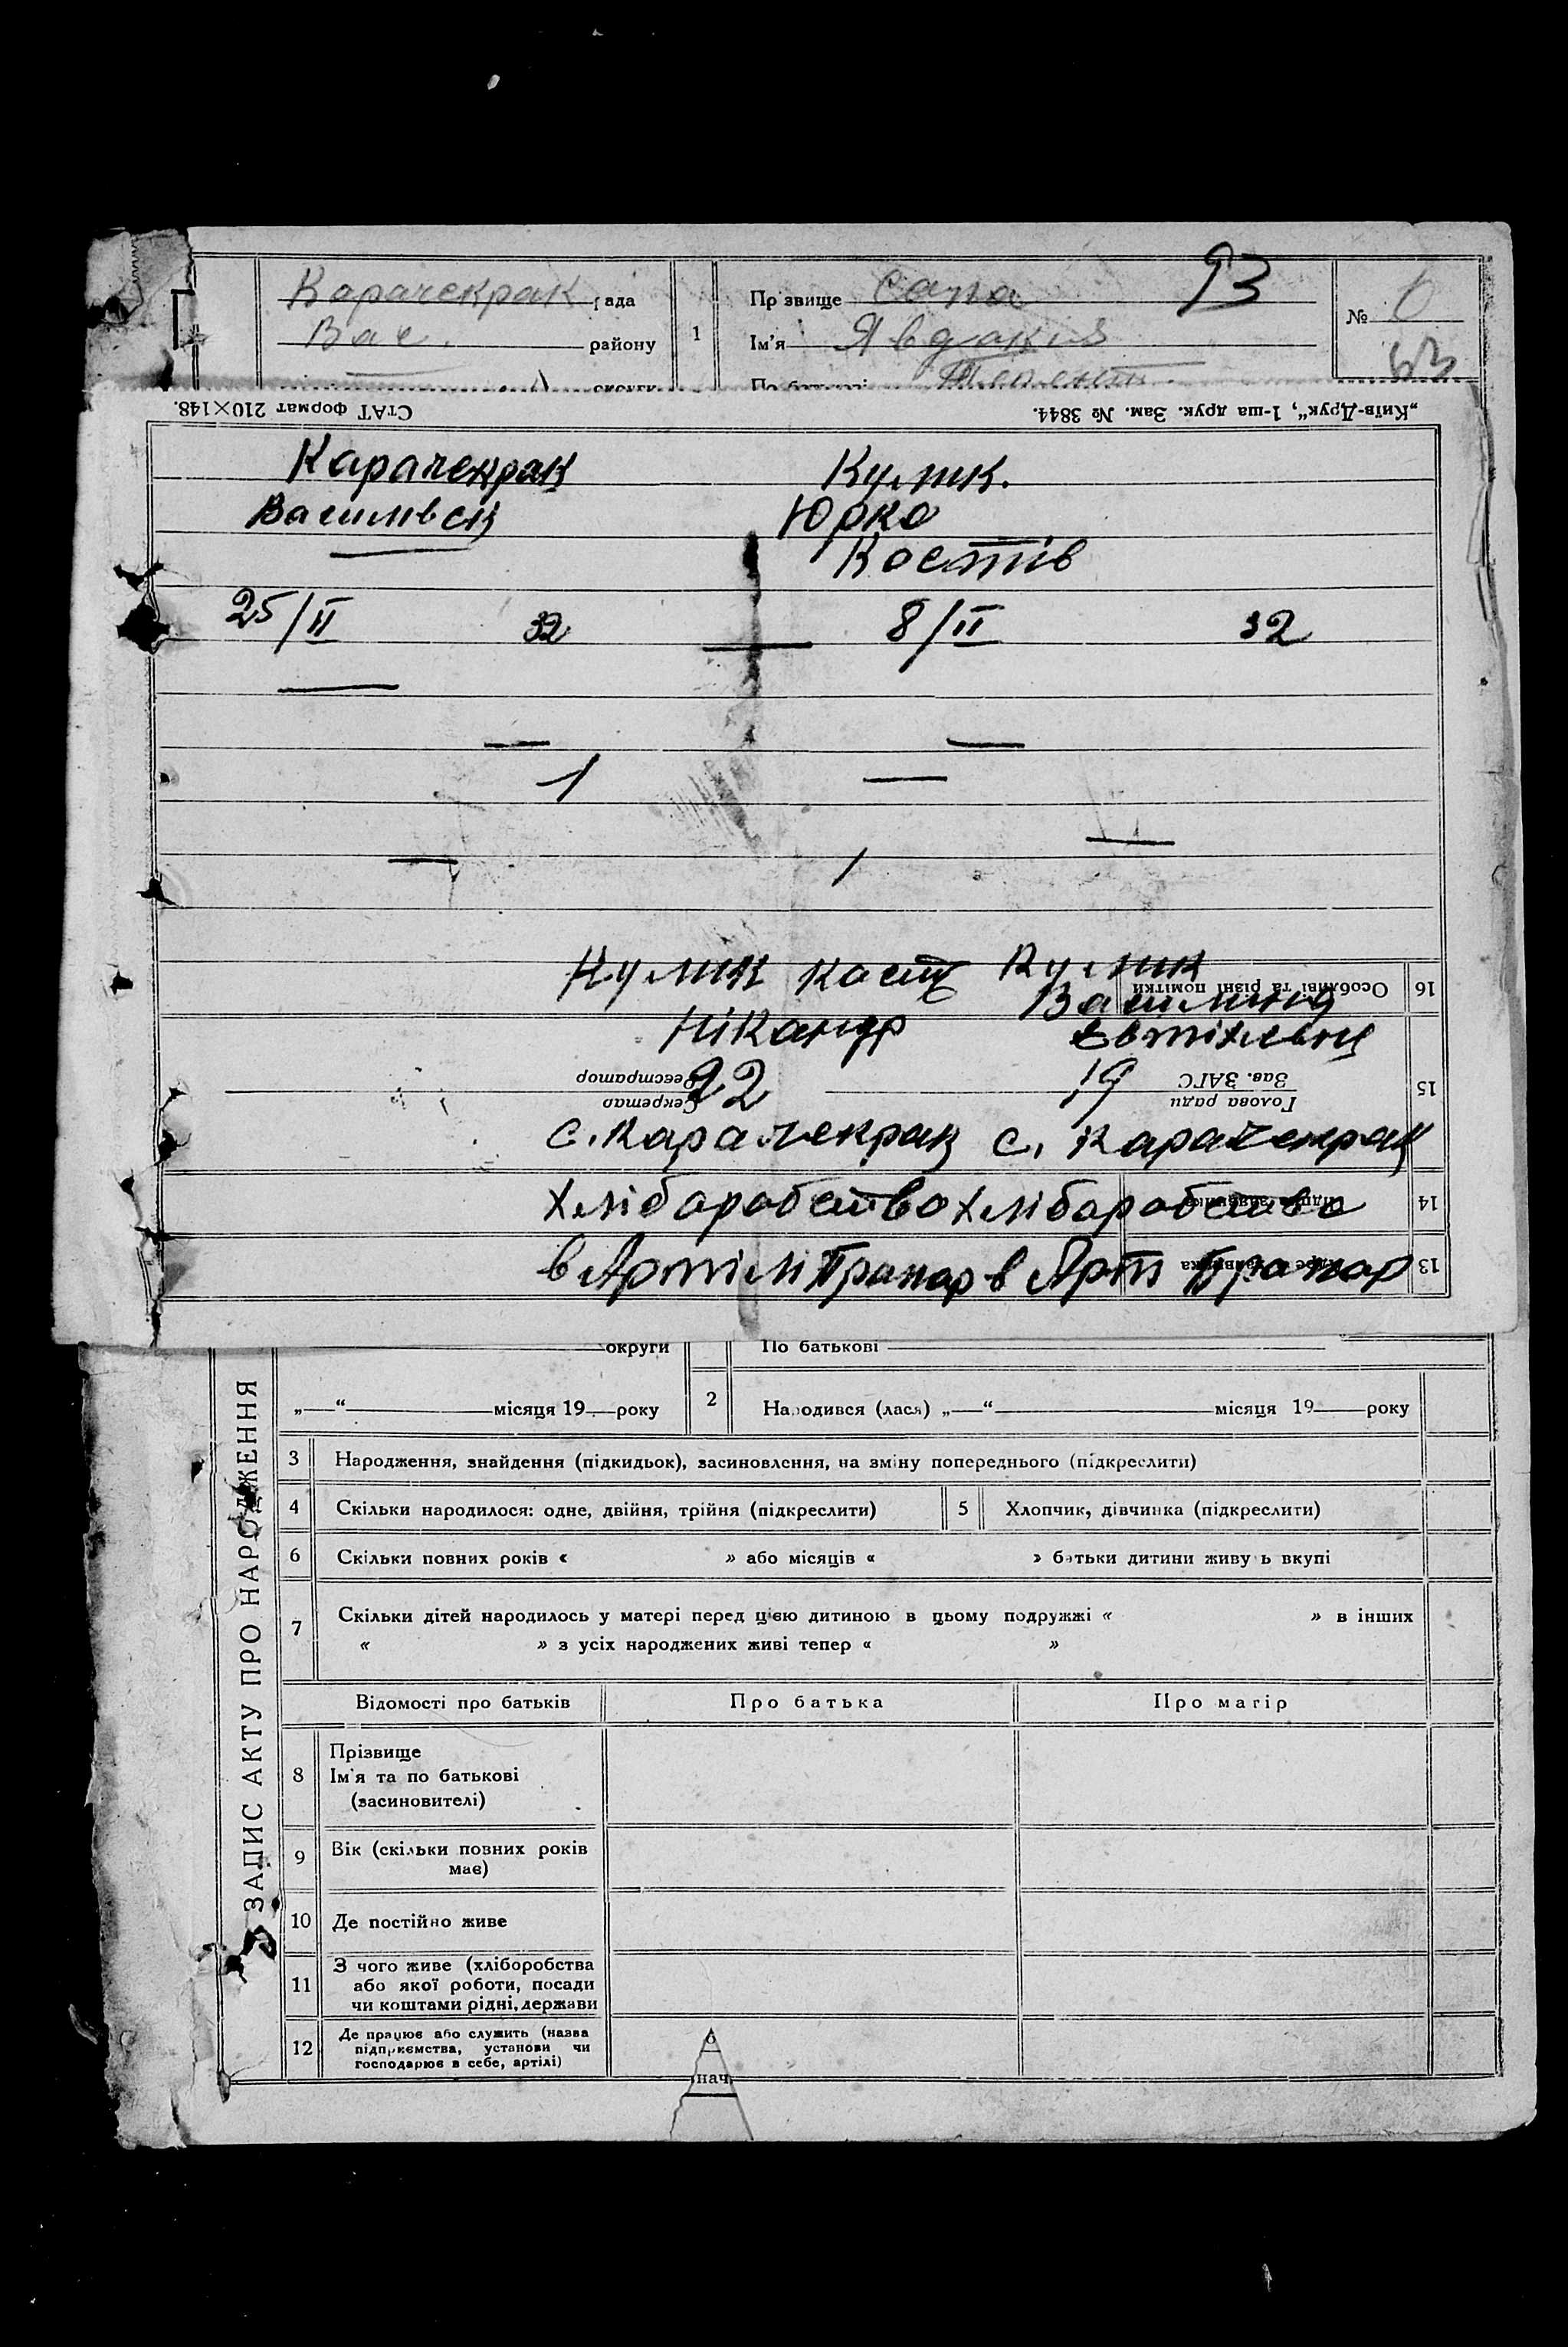 Карачекрак рада
Вас. району
1
Прізвище Сапа
Ім'я Явдокія
По батькові
93
№ 6
63
СтАТ формат 210×148.
„Київ-Друк“, 1-ша друк. Зам. № 3844.
Карачекрак Кулик.
Василівськ Юрко
Костів
25/II 32 8/II 32
1
/
Кулик Кост Кулик
16 Особливі та різні помітки
Василина
Ніканур Євтіхієвна
22 19
15 Голова ради
Зав. ЗАГС
Секретар
Реєстратор
с. Карачекрак с. Карачекрак
14
Хліборобство Хліборобство
13
в Артілі Прапор в Арті Прапор
округи По батькові
„ “ місяця 19 року 2 Народився (лася) „ “ місяця 19 року
ЗАПИС АКТУ ПРО НАРОДЖЕННЯ
3 Народження, знайдення (підкидьок), засиновлення, на зміну попереднього (підкреслити)
4 Скільки народилося: одне, двійня, трійня (підкреслити) 5 Хлопчик, дівчинка (підкреслити)
6 Скільки повних років « » або місяців « » батьки дитини живуть вкупі
7 Скільки дітей народилось у матері перед цією дитиною в цьому подружжі « » в інших
« » з усіх народжених живі тепер « »
Відомості про батьків Про батька Про матір
8 Прізвище
Ім'я та по батькові
(засиновителі)
9 Вік (скільки повних років
має)
10 Де постійно живе
11 З чого живе (хліборобства
або якої роботи, посади
чи коштами рідні, держави
12 Де працює або служить (назва
підприємства, установи чи
господарює в себе, артілі)
нач